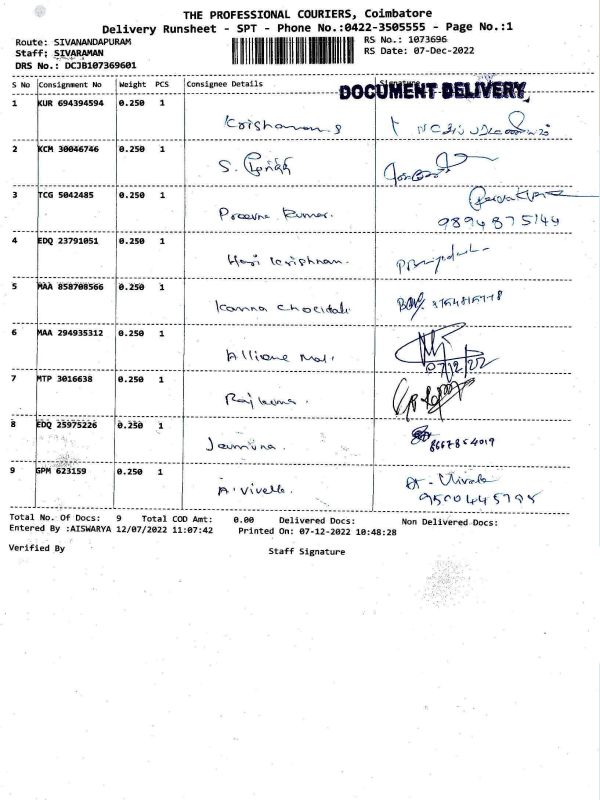 THE PROFESSIONAL COURIERS, Coimbatore
Delivery Runsheet - SPT - Phone No.:0422-3505555 - Page No.:1
Route: SIVANANDAPURAM RS No.: 1073696
Staff: SIVARAMAN RS Date: 07-Dec-2022
DRS No.: DCJB107369601
S No Consignment No Weight PCS Consignee Details Signature
DOCUMENT DELIVERY
1 KUR 694394594 0.250 1
2 KCM 30046746 0.250 1 S.
3 TCG 5042485 0.250 1 Praveena Kumar.
9894875144
4 EDQ 23791051 0.250 1 Hari Krishnan.
5 MAA 858708566 0.250 1 Kanna
6 MAA 294935312 0.250 1
07/12/22
7 MTP 3016638 0.250 1 Rajkumar.
8 EDQ 25975226 0.250 1 Jamuna. 8667854019
9 GPM 623159 0.250 1 A. Vivek.
Total No. Of Docs: 9 Total COD Amt: 0.00 Delivered Docs: Non Delivered Docs:
Entered By :AISWARYA 12/07/2022 11:07:42 Printed On: 07-12-2022 10:48:28
Verified By Staff Signature